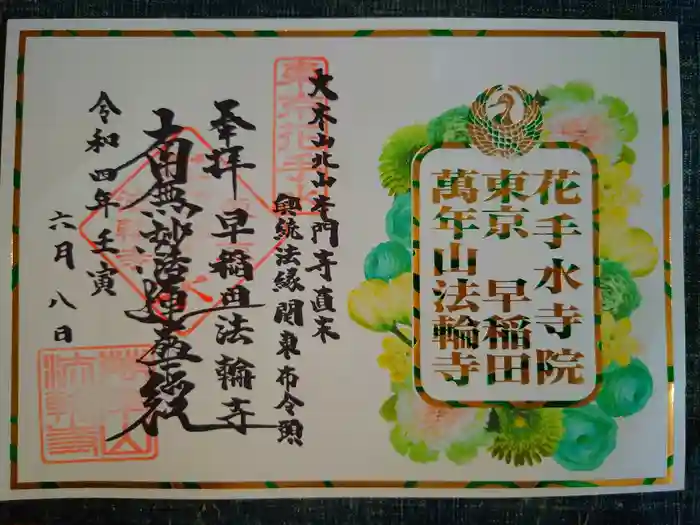 花手水寺院
東京 早稲田
萬年山法輪寺
大本山北山本門寺直末
興統法縁関東布令頭
奉拝 早稲田法輪寺
南無妙法蓮華経
令和四年壬寅
六月八日
東京花手水